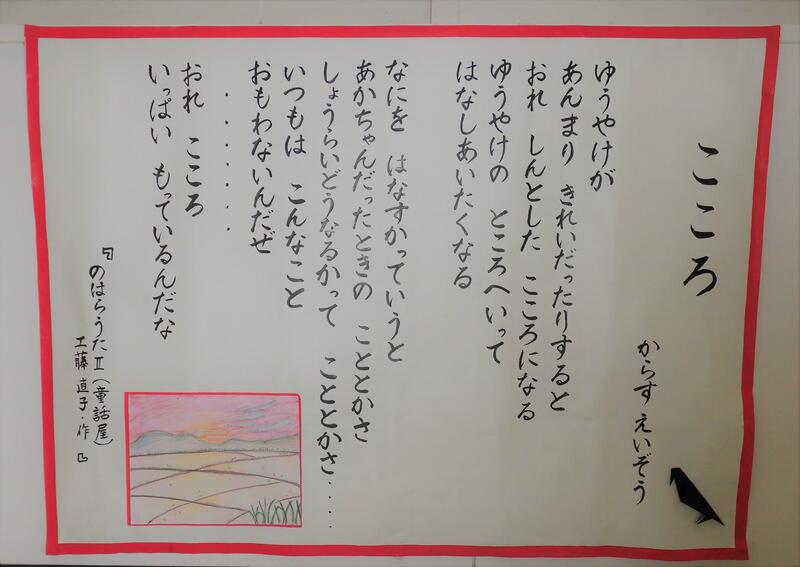 こころ
からす えいぞう
ゆうやけが
あんまり きれいだったりすると
おれ しんとした こころになる
ゆうやけの ところへいって
はなしあいたくなる
なにを はなすかっていうと
あかちゃんだったときの こととかさ
しょうらいどうなるかって こととかさ・・・・
いつもは こんなこと
おもわないんだぜ
・・・・・・・
おれ こころ
いっぱい もっているんだな
『のはらうたⅡ(童話屋)
工藤直子・作』